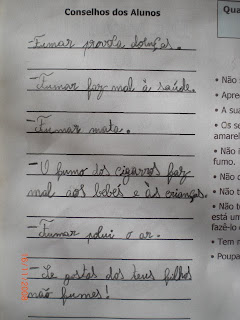 Conselhos dos Alunos
Qua
-Fumar provoca doenças.
-Fumar faz mal à saúde.
-Fumar mata.
-O fumo dos cigarros faz
mal aos bebés e às crianças.
-Fumar polui o ar.
-Se gostas dos teus filhos
não fumes!
• Não s
• Apre
• A sua
• Os se
amarel
• Não i
fumo.
• Não d
• Não t
• Não to
está un
fazê-lo c
• Tem r
• Poupa